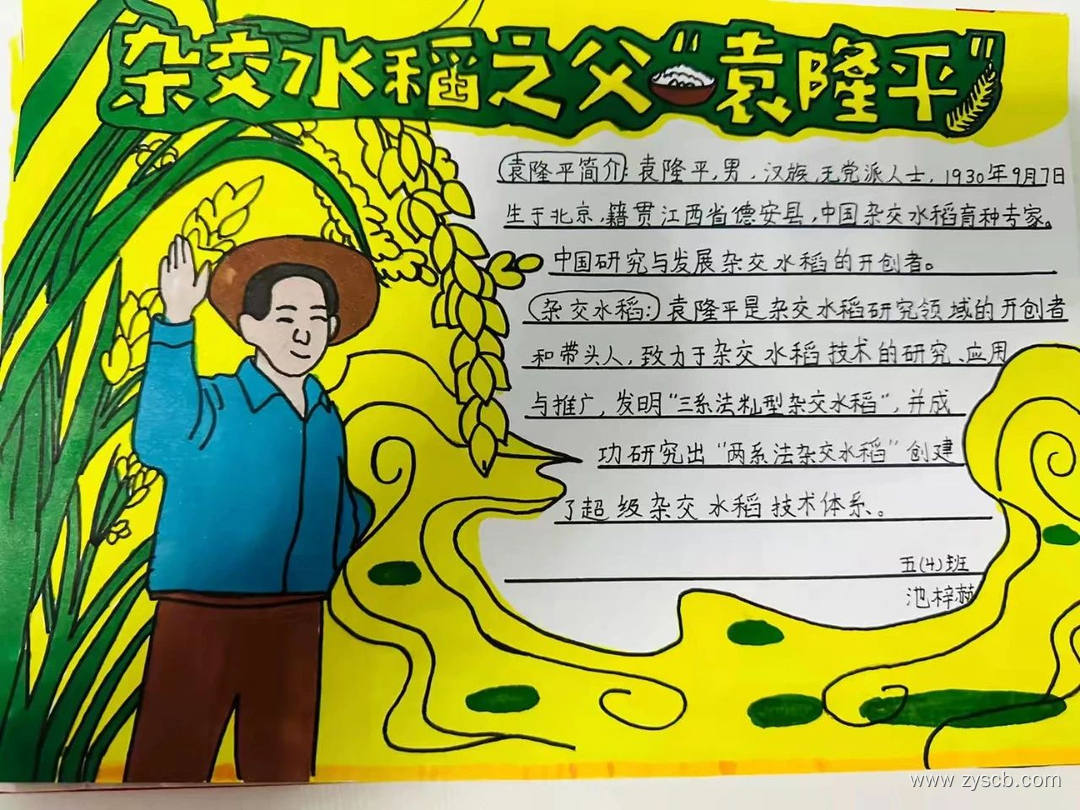 杂交水稻之父"袁隆平"
袁隆平简介:袁隆平,男,汉族,无党派人士,1930年9月7日
生于北京,籍贯江西省德安县,中国杂交水稻育种专家。
中国研究与发展杂交水稻的开创者。
杂交水稻:袁隆平是杂交水稻研究领域的开创者
和带头人,致力于杂交水稻技术的研究、应用
与推广,发明"三系法籼型杂交水稻",并成
功研究出"两系法杂交水稻"创建
了超级杂交水稻技术体系。
五(4)班
池梓
www.zyscb.com